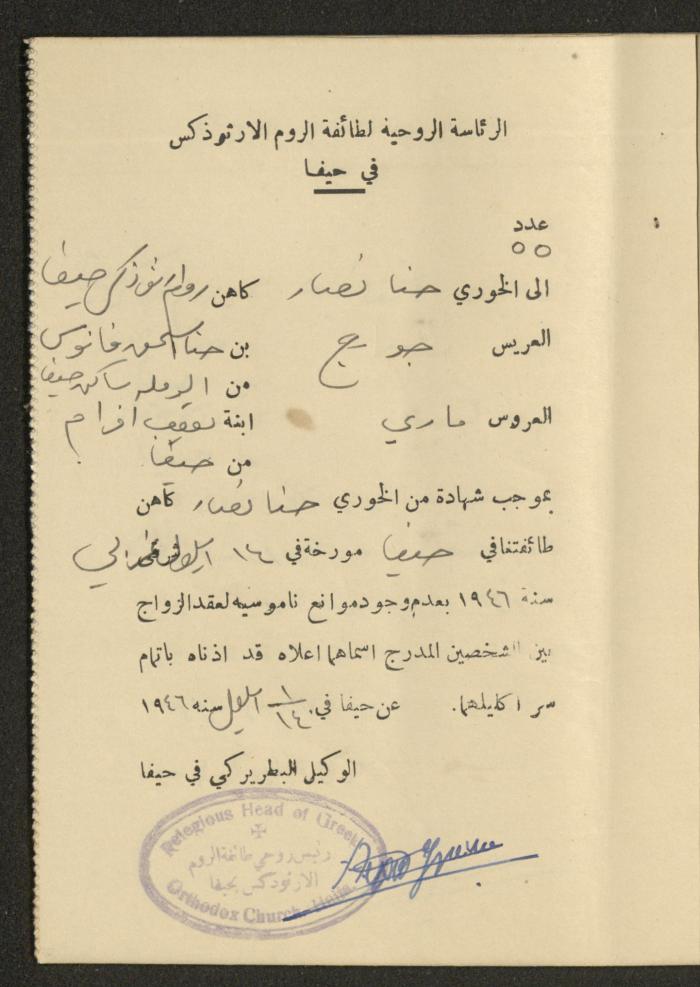 الرئاسة الروحية لطائفة الروم الارثوذكس
في حيفا
عدد
الى الخوري حنا نصار كاهن روم ارثوذكس حيفا
العريس جورج بن حنا اسحق فانوس
من الرمله ساكن حيفا
العروس ماري ابنة يعقوب افرام
من حيفا
بموجب شهادة من الخوري حنا نصار كاهن
طائفتنا في حيفا مورخة في ١٤ ايلول
سنة ١٩٤٦ بعدم وجود موانع ناموسيه لعقد الزواج
بين الشخصين المدرج اسماهما اعلاه قد اذناه باتمام
سر اكليلهما. عن حيفا في ١/١٤ ايلول سنه ١٩٤٦
الوكيل البطريركي في حيفا
Relegious Head of Greek
رئيس روحي طائفة الروم
الارثوذكس بحيفا
Orthodox Church, Haifa.